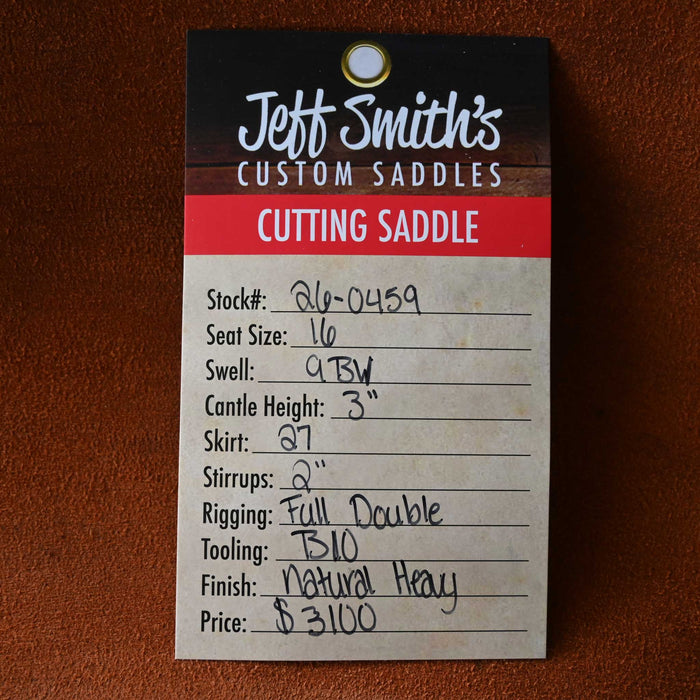 Jeff Smith's
CUSTOM SADDLES
CUTTING SADDLE
Stock#: 26-0459
Seat Size: 16
Swell: 9 BW
Cantle Height: 3"
Skirt: 27
Stirrups: 2"
Rigging: Full Double
Tooling: B10
Finish: Natural Heavy
Price: $3100